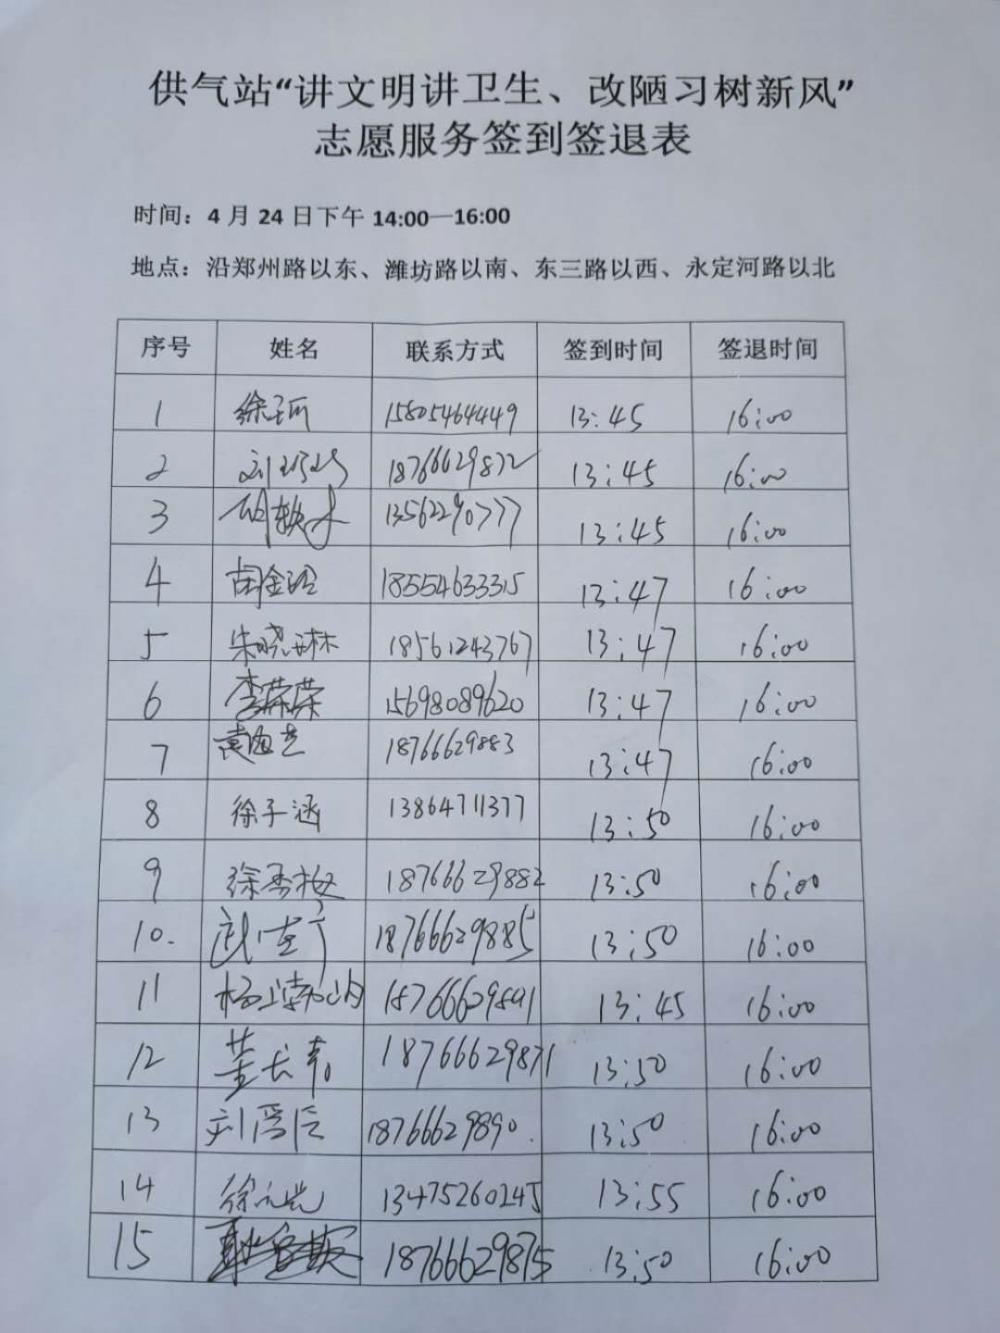 供气站“讲文明讲卫生、改陋习树新风”
志愿服务签到签退表
时间：4月24日下午14:00—16:00
地点：沿郑州路以东、潍坊路以南、东三路以西、永定河路以北
序号 姓名 联系方式 签到时间 签退时间
1 15805464449 13:45 16:00
2 18766629872 13:45 16:00
3 13562290777 13:45 16:00
4 18554633315 13:47 16:00
5 朱晓琳 18561243767 13:47 16:00
6 李荣荣 15698089620 13:47 16:00
7 18766629883 13:47 16:00
8 徐子涵 13864711377 13:50 16:00
9 徐秀梅 18766629882 13:50 16:00
10. 18766629885 13:50 16:00
11 18766629891 13:45 16:00
12 18766629871 13:50 16:00
13 18766629890 13:50 16:00
14 13475260245 13:55 16:00
15 18766629875 13:50 16:00